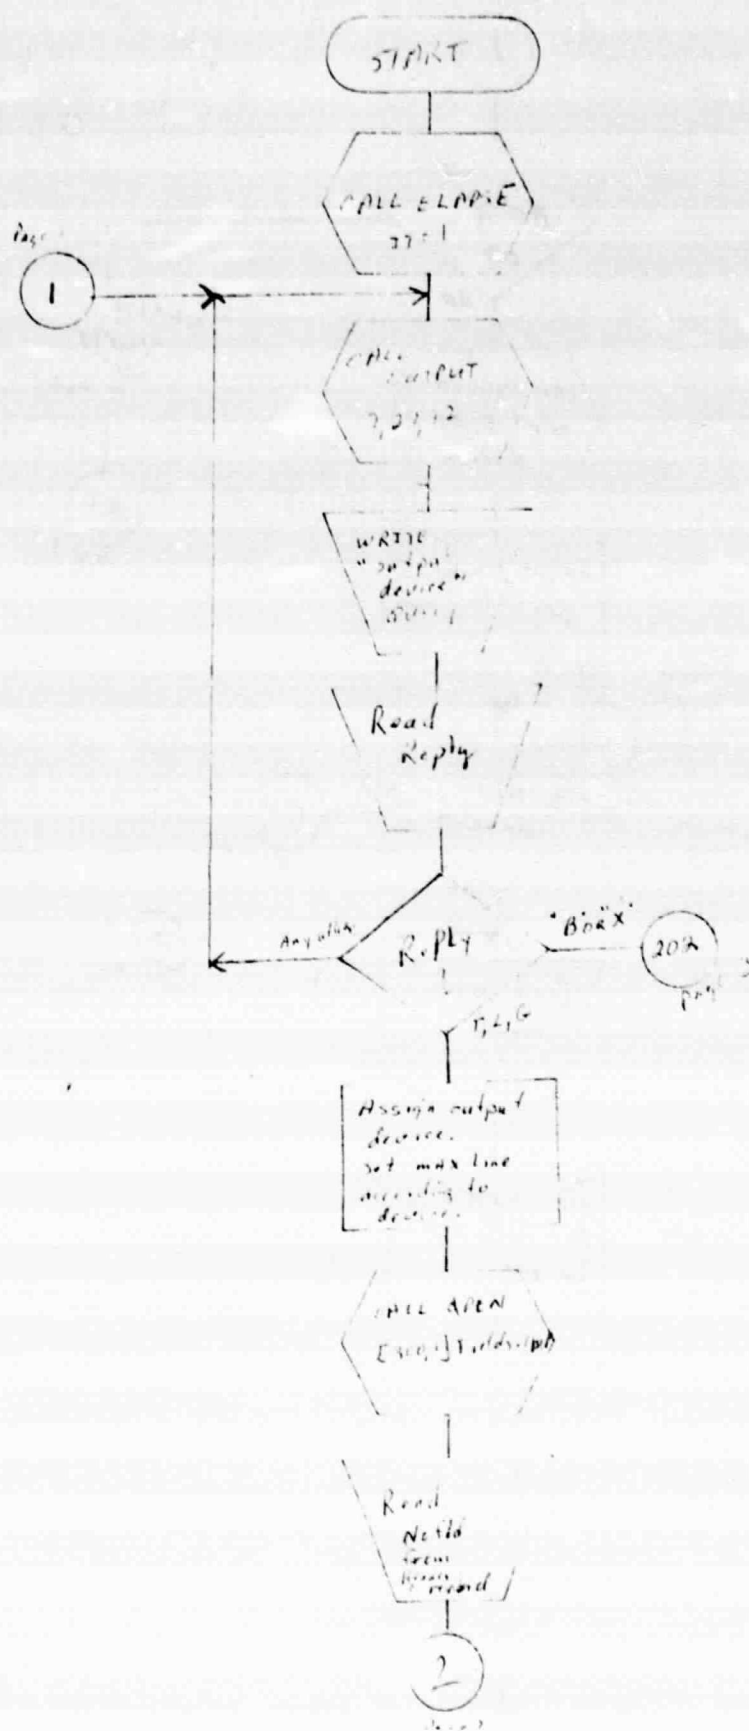 START
CALL ELAPSE
Page
1
CALL
OUTPUT
WRITE
"output
device"
Read
Reply
Any other
Reply
"B" OR "X"
202
page
T, L, G
Assign output
device.
set max line
according to
device.
CALL OPEN
Read
from
record
2